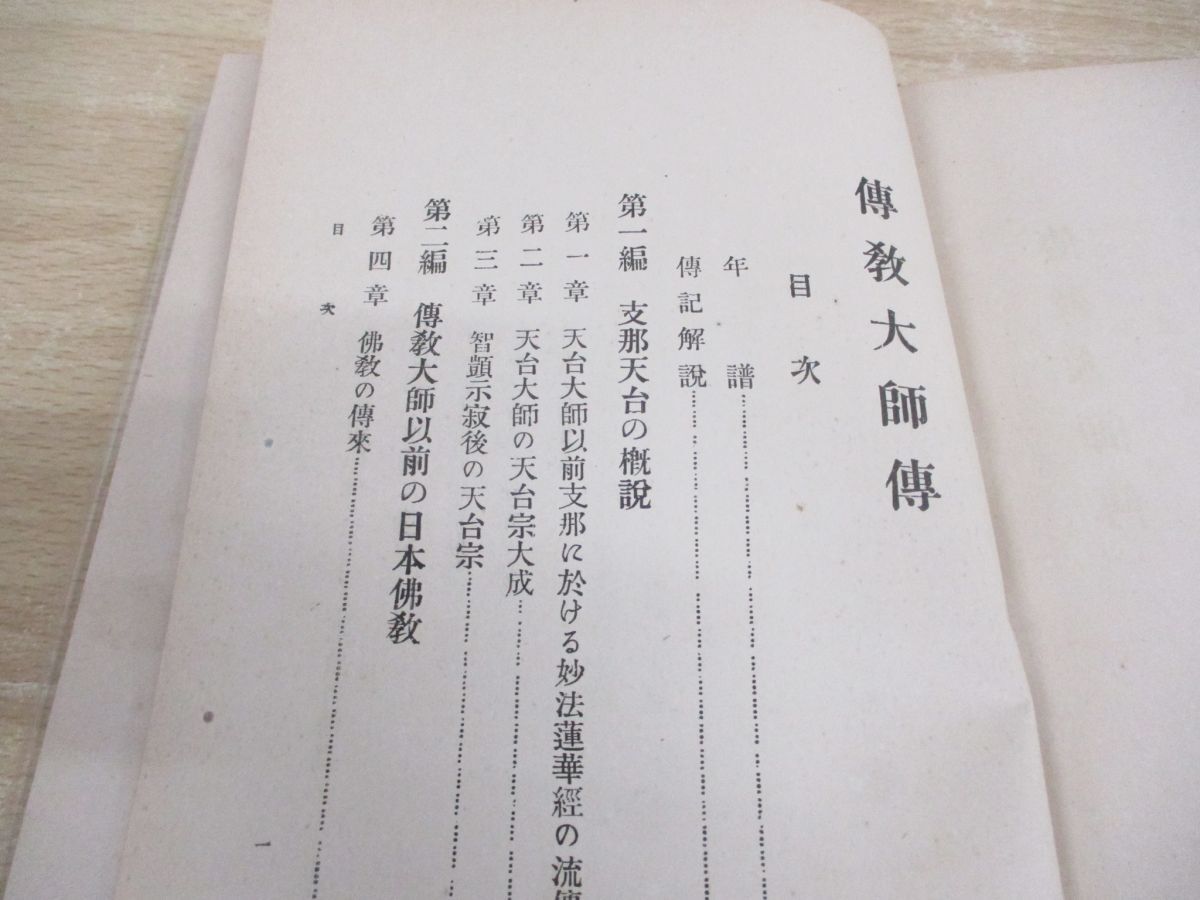 傳敎大師傳
目次
年譜
傳記解說
第一編 支那天台の槪說
第一章 天台大師以前支那に於ける妙法蓮華經の流傳
第二章 天台大師の天台宗大成
第三章 智顗示寂後の天台宗
第二編 傳敎大師以前の日本佛敎
第四章 佛敎の傳來
目次
一